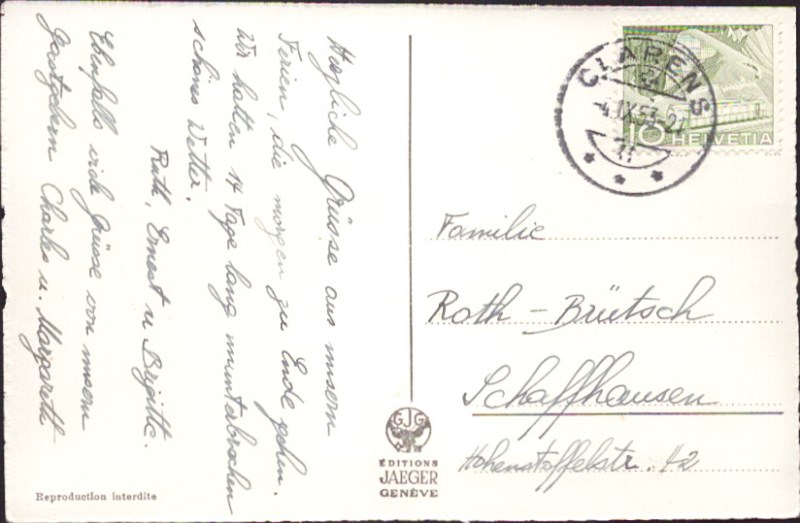 Herzliche Grüsse aus unsern
Ferien, die morgen zu Ende gehen.
Wir hatten 14 Tage lang ununterbrochen
schönes Wetter.
Ruth, Ernest u Brigitte.
Ebenfalls viele Grüsse von unsern
Gastgebern Charles u. Margareth
Reproduction interdite
GJG
ÉDITIONS
JAEGER
GENÈVE
CLARENS
-4.IX.53-21
10 HELVETIA
Familie
Roth-Brütsch
Schaffhausen
Hohenstoffelstr. 42